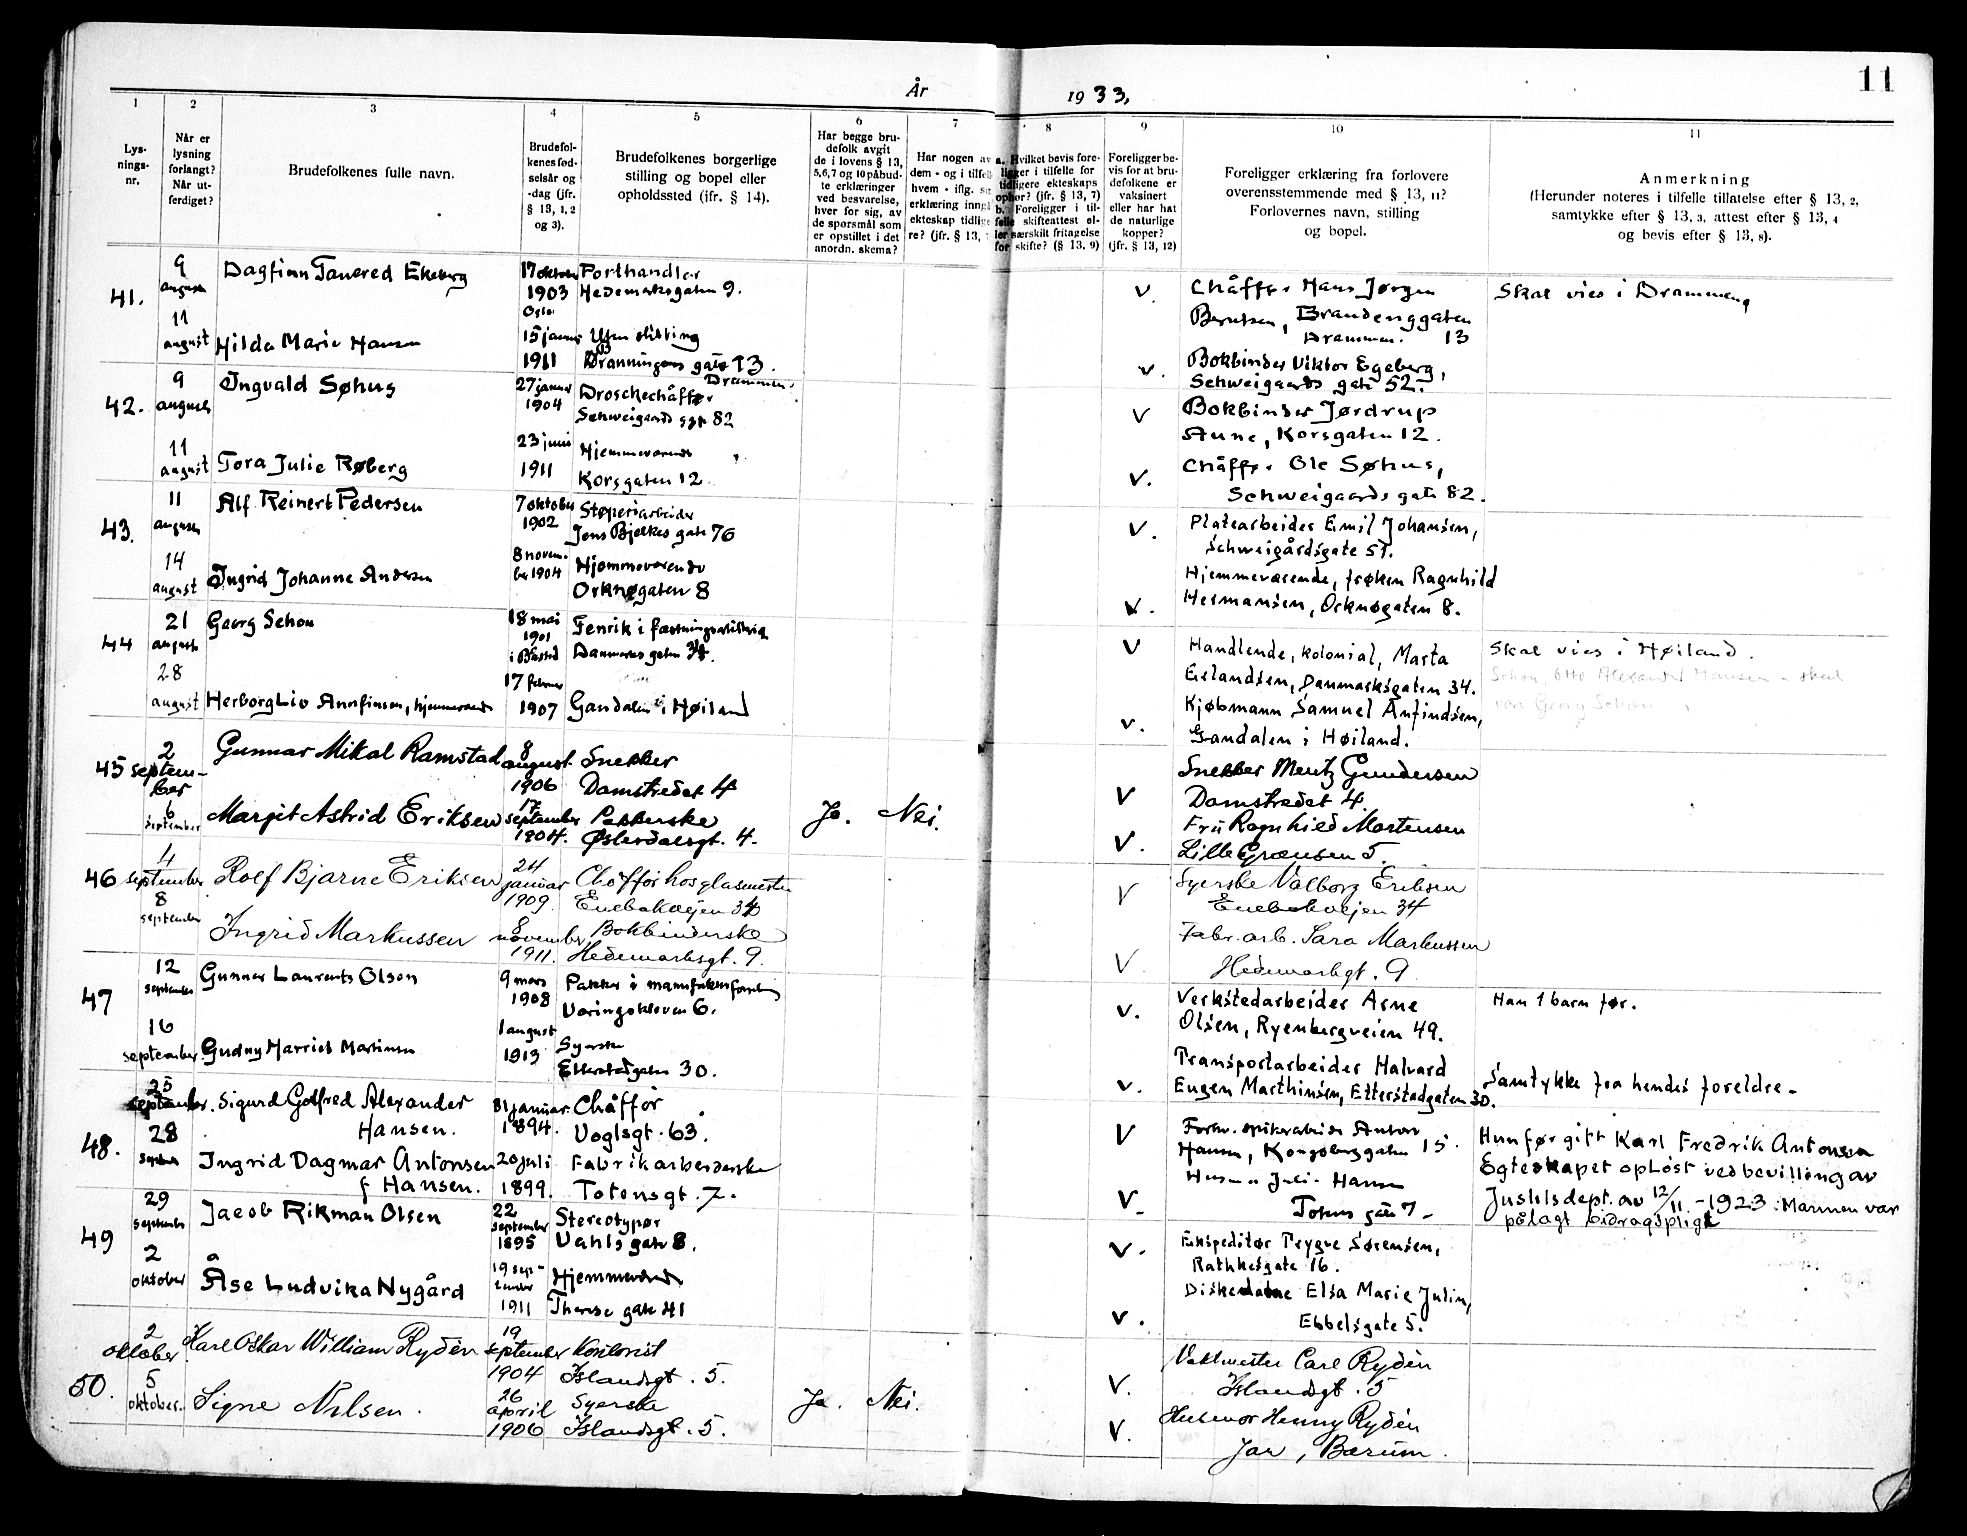 År
1933.
11
1
2
3
4
5
6
7
8
9
10
11
Lys-
nings-
nr.
Når er
lysning
forlangt?
Når ut-
ferdiget?
Brudefolkenes fulle navn.
Brudefol-
kenes fød-
selsår og
-dag (jfr.
§ 13, 1, 2
og 3).
Brudefolkenes borgerlige
stilling og bopel eller
opholdssted (jfr. § 14).
Har begge bru-
defolk avgit
de i lovens § 13,
5,6,7 og 10 påbud-
te erklæringer
ved besvarelse,
hver for sig, av
de spørsmål som
er opstillet i det
anordn. skema?
Har nogen av
dem - og i tilfelle
hvem - iflg.
erklæring inng
ekteskap tidlige-
re? (jfr. § 13,
a. Hvilket bevis fore-
ligger i tilfelle for
tidligere ekteskaps
ophør? (jfr. § 13, 7)
b. Foreligger i til-
felle skifteattest el-
ler særskilt fritagelse
for skifte? (§ 13, 9)
Foreligger be-
vis for at bru-
defolkene er
vaksinert
eller har hat
de naturlige
kopper?
(jfr. § 13, 12)
Foreligger erklæring fra forlovere
overensstemmende med § 13, 11?
Forlovernes navn, stilling
og bopel.
Anmerkning
(Herunder noteres i tilfelle tillatelse efter § 13, 2,
samtykke efter § 13, 3, attest efter § 13, 4
og bevis efter § 13, 8).
41.
9
august
11
august
Dagfinn Tancred Ekeberg
Hilda Marie Hansen
17 oktober
1903
Oslo
15 januar
1911
Porthandler
Hedemarksgaten 9.
Uten stilling
gate 13.
Drammen.
v.
v.
Chåffør Hans Jørgen
Berntsen, Brandenggaten
Drammen. 13
Bokbinder Viktor Egeberg,
Schweigaards gate 52.
Skal vies i Drammen,
42.
9
august
11
august
Ingvald Søhus
Tora Julie Røberg
27 januar
1904
23 juni
1911
Droschechåffør
Schweigaards gt. 82
Hjemmeværende
Korsgaten 12
v
v.
Bokbinder Jørdrup
Aune, Korsgaten 12.
Chåffør Ole Søhus,
Schweigaards gate 82.
43.
11
august
14
august
Alf Reinert Pedersen
Ingrid Johanne Andersen
7 oktober
1902
8 novem-
ber 1904
Støperiarbeider
Jens Bjelkes gate 76
Hjemmeværende
Orknøgaten 8
v.
v.
Platearbeider Emil Johansen,
Schweigårdsgate 51.
Hjemmeværende, frøken Ragnhild
Hermansen, Orknøgaten 8.
44
21
august
28
august
Georg Schou
Herborg Liv Annfinsen, hjemmeværende
18 mai
1901
17 februar
1907
Fenrik i
Danmarks gaten 34.
Gandalen i Høiland
v
v.
Handlende, kolonial, Marta
Erlandsen, Danmarksgaten 34.
Kjøbmann Samuel Anfindsen,
Gandalen i Høiland.
Skal vies i Høiland.
45
2
septem-
ber
6
september
Gunnar Mikal Ramstad
Margit Astrid Eriksen
8
august
1906
17
september
1904.
Snekker
Damstredet 4
Pakkerske
Østerdalsgt. 4.
Ja. Nei.
v
v.
Snekker Mentz Gundersen
Damstredet 4.
Fru Ragnhild Mortensen
Lille Grænsen 5.
46
4
september
8
september
Rolf Bjarne Eriksen
Ingrid Markussen
24
januar
1909.
8
november
1911.
Chåffør hos glasmester
Enebakveien 34
Bokbinderske
Hedemarksgt. 9.
v
v
Syerske Valborg Eriksen
Enebakveien 34
Fabr. arb. Sara Markussen
Hedemarkgt. 9
47
12
september
16
september
Gunnar Laurents Olsen
Gudny Harriet Martinsen
9 mars
1908
1 august
1913
Pakker i
Væringskleven 6.
Syerske
Etterstadgaten 30.
v.
v.
Verkstedarbeider Arne
Olsen, Ryenbergveien 49.
Transportarbeider Halvard
Eugen Marthinsen, Etterstadgaten 30.
Han 1 barn før.
Samtykke fra hendes foreldre -
48.
25
september.
28
septbr
Sigurd Gotfred Alexander
Hansen.
Ingrid Dagmar Antonsen
f Hansen.
31 januar
1894.
20 juli
1899.
Chåffør
Voglsgt. 63.
Fabrikarbeiderske
Totensgt. 7.
v
v.
Anton
Hansen, Kongsberggaten 15.
Husmor Julie Hansen
Totens gate 7 -
Hun før gift Karl Fredrik Antonsen
Egteskapet opløst ved bevilling av
Justisdept. av 12/11 - 1923. Mannen var
pålagt bidragsplikt
49
29
september
2
oktober
Jacob Rikman Olsen
Åse Ludvika Nygård
22
september
1895
19 sep-
tember
1911
Stereotypør
Vahls gate 8.
Hjemmeværende
Therese gate 41
v.
v.
Ekspeditør Trygve Sørensen,
Rathkesgate 16.
Diskedame Elsa Marie Julin,
Ebbelsgate 5.
50.
2
oktober
5
oktober.
Karl Oskar William Rydén
Signe Nilsen.
19
september
1904
26
april
1906
Islandsgt. 5.
Syerske
Islandsgt. 5.
Ja. Nei.
v.
v.
Vaktmester Carl Rydén
Islandsgt. 5
Husmor Henny Rydén
Jar, Bærum.